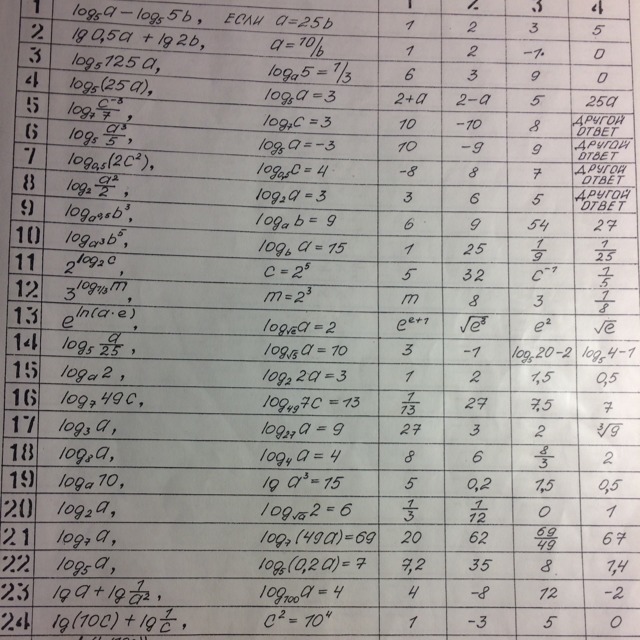 1 log₅a − log₅5b, ЕСЛИ a=25b 1 2 3 5
2 lg0,5a + lg2b, a=10/b 1 2 -1 0
3 log₅125a, logₐ5=1/3 6 3 9 0
4 log₅(25a), log₅a=3 2+a 2-a 5 25a
5 log₇ c⁻³/7, log₇c=3 10 -10 8 ДРУГОЙ ОТВЕТ
6 log₅ a³/5, log₅a=-3 10 -9 9 ДРУГОЙ ОТВЕТ
7 log₀,₅(2c²), log₀,₅c=4 -8 8 7 ДРУГОЙ ОТВЕТ
8 log₂ a²/2, log₂a=3 3 6 5 ДРУГОЙ ОТВЕТ
9 log_{a^{0,5}}b³, logₐb=9 6 9 54 27
10 log_{a³}b⁵, log_b a=15 1 25 1/9 1/25
11 2^{log₂c}, c=2⁵ 5 32 c⁻¹ 1/5
12 3^{log_{1/3}m}, m=2³ m 8 3 1/8
13 e^{ln(a·e)}, log_{√e}a=2 e^{e+1} √e³ e² √e
14 log₅ a/25, log_{√5}a=10 3 -1 log₅20-2 log₅4-1
15 logₐ2, log₂2a=3 1 2 1,5 0,5
16 log₇49c, log₄₉7c=13 1/13 27 7,5 7
17 log₃a, log₂₇a=9 27 3 2 ∛9
18 log₈a, log₄a=4 8 6 8/3 2
19 logₐ10, lg a³=15 5 0,2 1,5 0,5
20 log₂a, log_{√a}2=6 1/3 1/12 0 1
21 log₇a, log₇(49a)=69 20 62 69/49 67
22 log₅a, log₅(0,2a)=7 7,2 35 8 1,4
23 lga+lg 1/a², log₁₀₀a=4 4 -8 12 -2
24 lg(10c)+lg 1/c, c²=10⁴ 1 -3 5 0